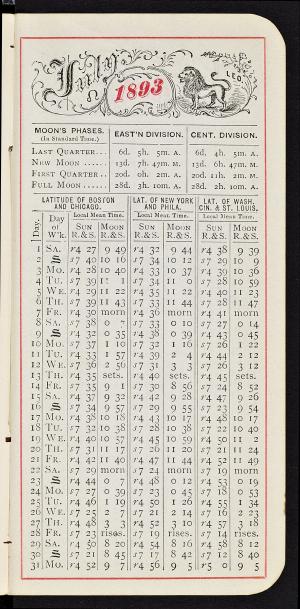 July
1893
LEO.
MOON'S PHASES. (In Standard Time.) EAST'N DIVISION. CENT. DIVISION.
LAST QUARTER.. 6d. 5h. 5m. A. 6d. 4h. 5m. A.
NEW MOON ...... 13d. 7h. 47m. M. 13d. 6h. 47m. M.
FIRST QUARTER.. 20d. 0h. 2m. A. 20d. 11h. 2m. M.
FULL MOON ...... 28d. 3h. 10m. A. 28d. 2h. 10m. A.
LATITUDE OF BOSTON AND CHICAGO. LAT. OF NEW YORK AND PHILA. LAT. OF WASH. CIN. & ST. LOUIS.
Local Mean Time. Local Mean Time. Local Mean Time.
Day. Day of W'k. SUN R.&S. MOON R.&S. SUN R.&S. MOON R.&S. SUN R.&S. MOON R.&S.
1 SA. r4 27 9 49 r4 32 9 44 r4 38 9 39
2 S s7 40 10 16 s7 34 10 12 s7 29 10 9
3 MO. r4 28 10 40 r4 33 10 37 r4 39 10 36
4 TU. s7 39 s7 34 11 0 s7 28 10 59
5 WE. r4 29 11 22 r4 35 11 22 r4 40 11 23
6 TH. s7 39 11 43 s7 33 11 44 s7 28 11 47
7 FR. r4 30 morn r4 36 morn r4 41 morn
8 SA. s7 38 0 s7 33 0 10 s7 27 0 14
9 S r4 32 0 35 r4 38 0 39 r4 43 0 45
10 MO. s7 37 1 10 s7 32 1 16 s7 26 1 22
11 TU. r4 33 1 57 r4 39 2 4 r4 44 2 12
12 WE. s7 36 2 56 s7 31 3 3 s7 26 3 12
13 TH. r4 35 sets. r4 40 sets. r4 45 sets.
14 FR. s7 35 9 1 s7 30 8 56 s7 24 8 52
15 SA. r4 37 9 32 r4 42 9 28 r4 47 9 26
16 S s7 34 9 57 s7 29 9 55 s7 23 9 54
17 MO. r4 38 10 18 r4 43 10 17 r4 48 10 17
18 TU. s7 32 10 38 s7 28 10 38 s7 22 10 40
19 WE. r4 40 10 57 r4 45 10 59 r4 50 11 2
20 TH. s7 31 11 17 s7 26 11 20 s7 21 11 24
21 FR. r4 42 11 40 r4 47 11 44 r4 52 11 49
22 SA. s7 29 morn s7 24 morn s7 19 morn
23 S r4 44 0 7 r4 48 0 12 r4 53 0 19
24 MO. s7 27 0 39 s7 23 0 45 s7 18 0 53
25 TU. r4 46 1 19 r4 50 1 26 r4 55 1 34
26 WE. s7 25 2 7 s7 21 2 14 s7 16 2 23
27 TH. r4 48 3 3 r4 52 3 10 r4 57 3 18
28 FR. s7 23 rises. s7 19 rises. s7 14 rises.
29 SA. r4 50 8 20 r4 54 8 16 r4 58 8 12
30 S s7 21 8 45 s7 17 8 42 s7 12 8 40
31 MO. r4 52 9 7 r4 56 9 5 r5 0 9 5